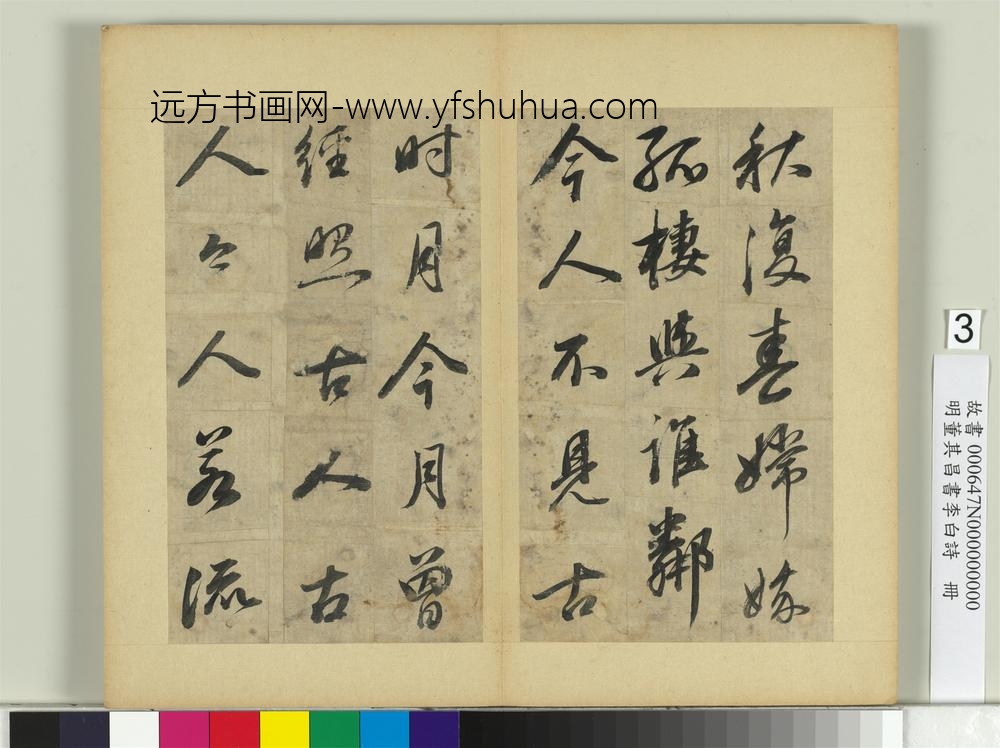 远方书画网-www.yfshuhua.com
秋復春嫦娥
孤棲與誰鄰
今人不見古
时月今月曾
經照古人古
人今人若流
3
故書 000647N000000000
明董其昌書李白詩 冊